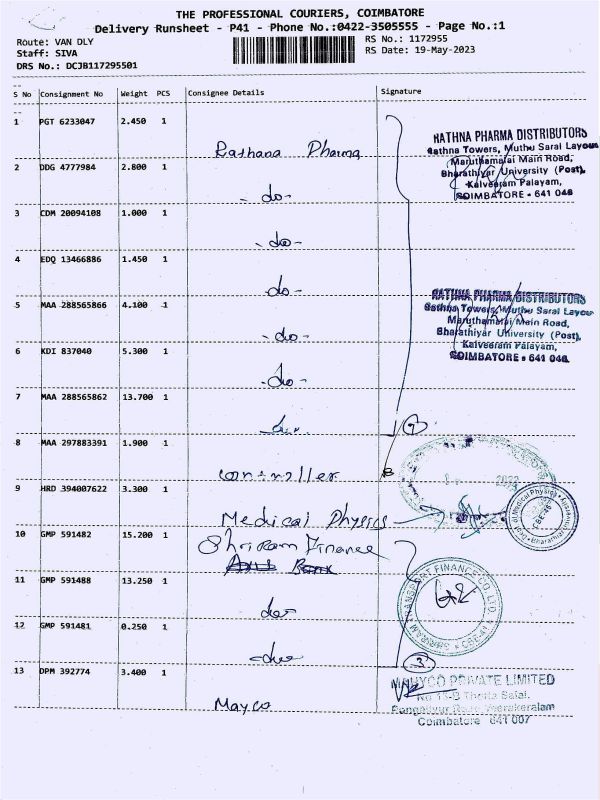 THE PROFESSIONAL COURIERS, COIMBATORE
Delivery Runsheet - P41 - Phone No.:0422-3505555 - Page No.:1
Route: VAN DLY
Staff: SIVA
DRS No.: DCJB117295501
RS No.: 1172955
RS Date: 19-May-2023
S No Consignment No Weight PCS Consignee Details Signature
1 PGT 6233047 2.450 1
Rathana Pharma
RATHNA PHARMA DISTRIBUTORS
Rathna Towers, Muthu Saral Layout
Maruthamalai Main Road,
Bharathiyar University (Post),
Kalveeram Palayam,
COIMBATORE - 641 046
2 DDG 4777984 2.800 1
- do -
3 CDM 20094108 1.000 1
- do -
4 EDQ 13466886 1.450 1
- do -
5 MAA 288565866 4.100 1
- do -
RATHNA PHARMA DISTRIBUTORS
Rathna Towers, Muthu Saral Layout
Maruthamalai Main Road,
Bharathiyar University (Post),
Kalveeram Palayam,
COIMBATORE - 641 046
6 KDI 837040 5.300 1
- do -
7 MAA 288565862 13.700 1
do
7
8 MAA 297883391 1.900 1
Controller
2023
9 HRD 394007622 3.300 1
Medical Physics
10 GMP 591482 15.200 1
Shriram Finance
Axis Bank
11 GMP 591488 13.250 1
do
SHRIRAM TRANSPORT FINANCE CO. LTD. CBE-41
12 GMP 591481 0.250 1
do
3
13 DPM 392774 3.400 1
Mayco
MAHYCO PRIVATE LIMITED
Veerakeralam
Coimbatore 641 007